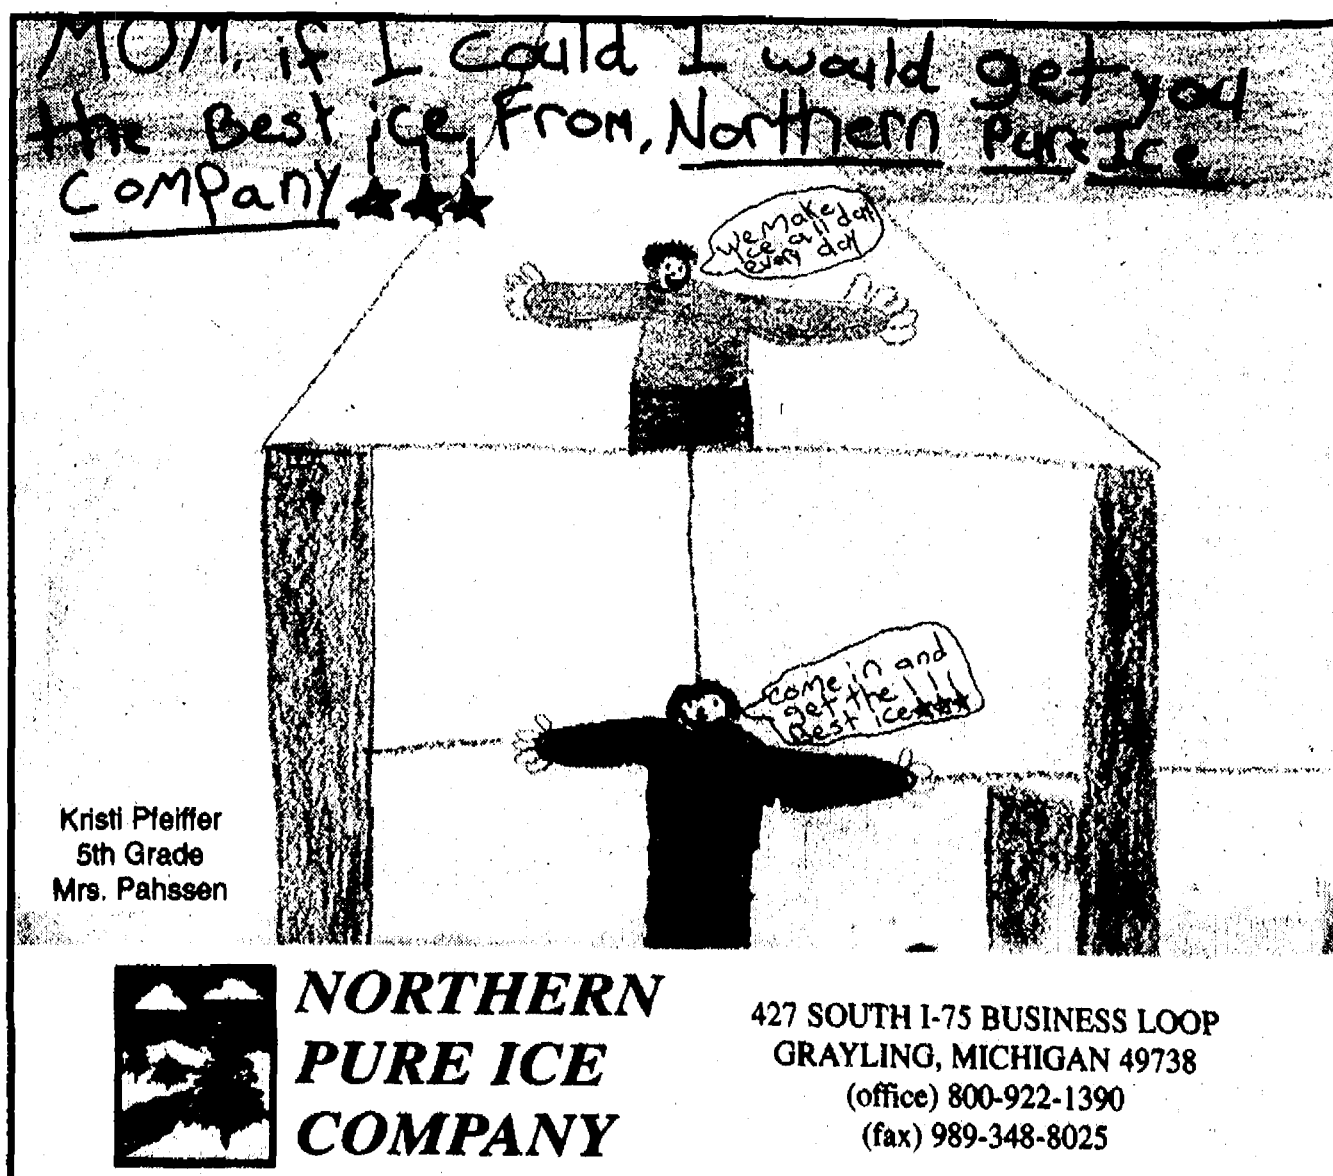 MOM, if I could I would get you
the Best ice, From, Northern Pure Ice
Company
we make
ice all day
every day
come in and
get the !!!
Best ice
Kristi Pfeiffer
5th Grade
Mrs. Pahssen
NORTHERN
PURE ICE
COMPANY
427 SOUTH I-75 BUSINESS LOOP
GRAYLING, MICHIGAN 49738
(office) 800-922-1390
(fax) 989-348-8025